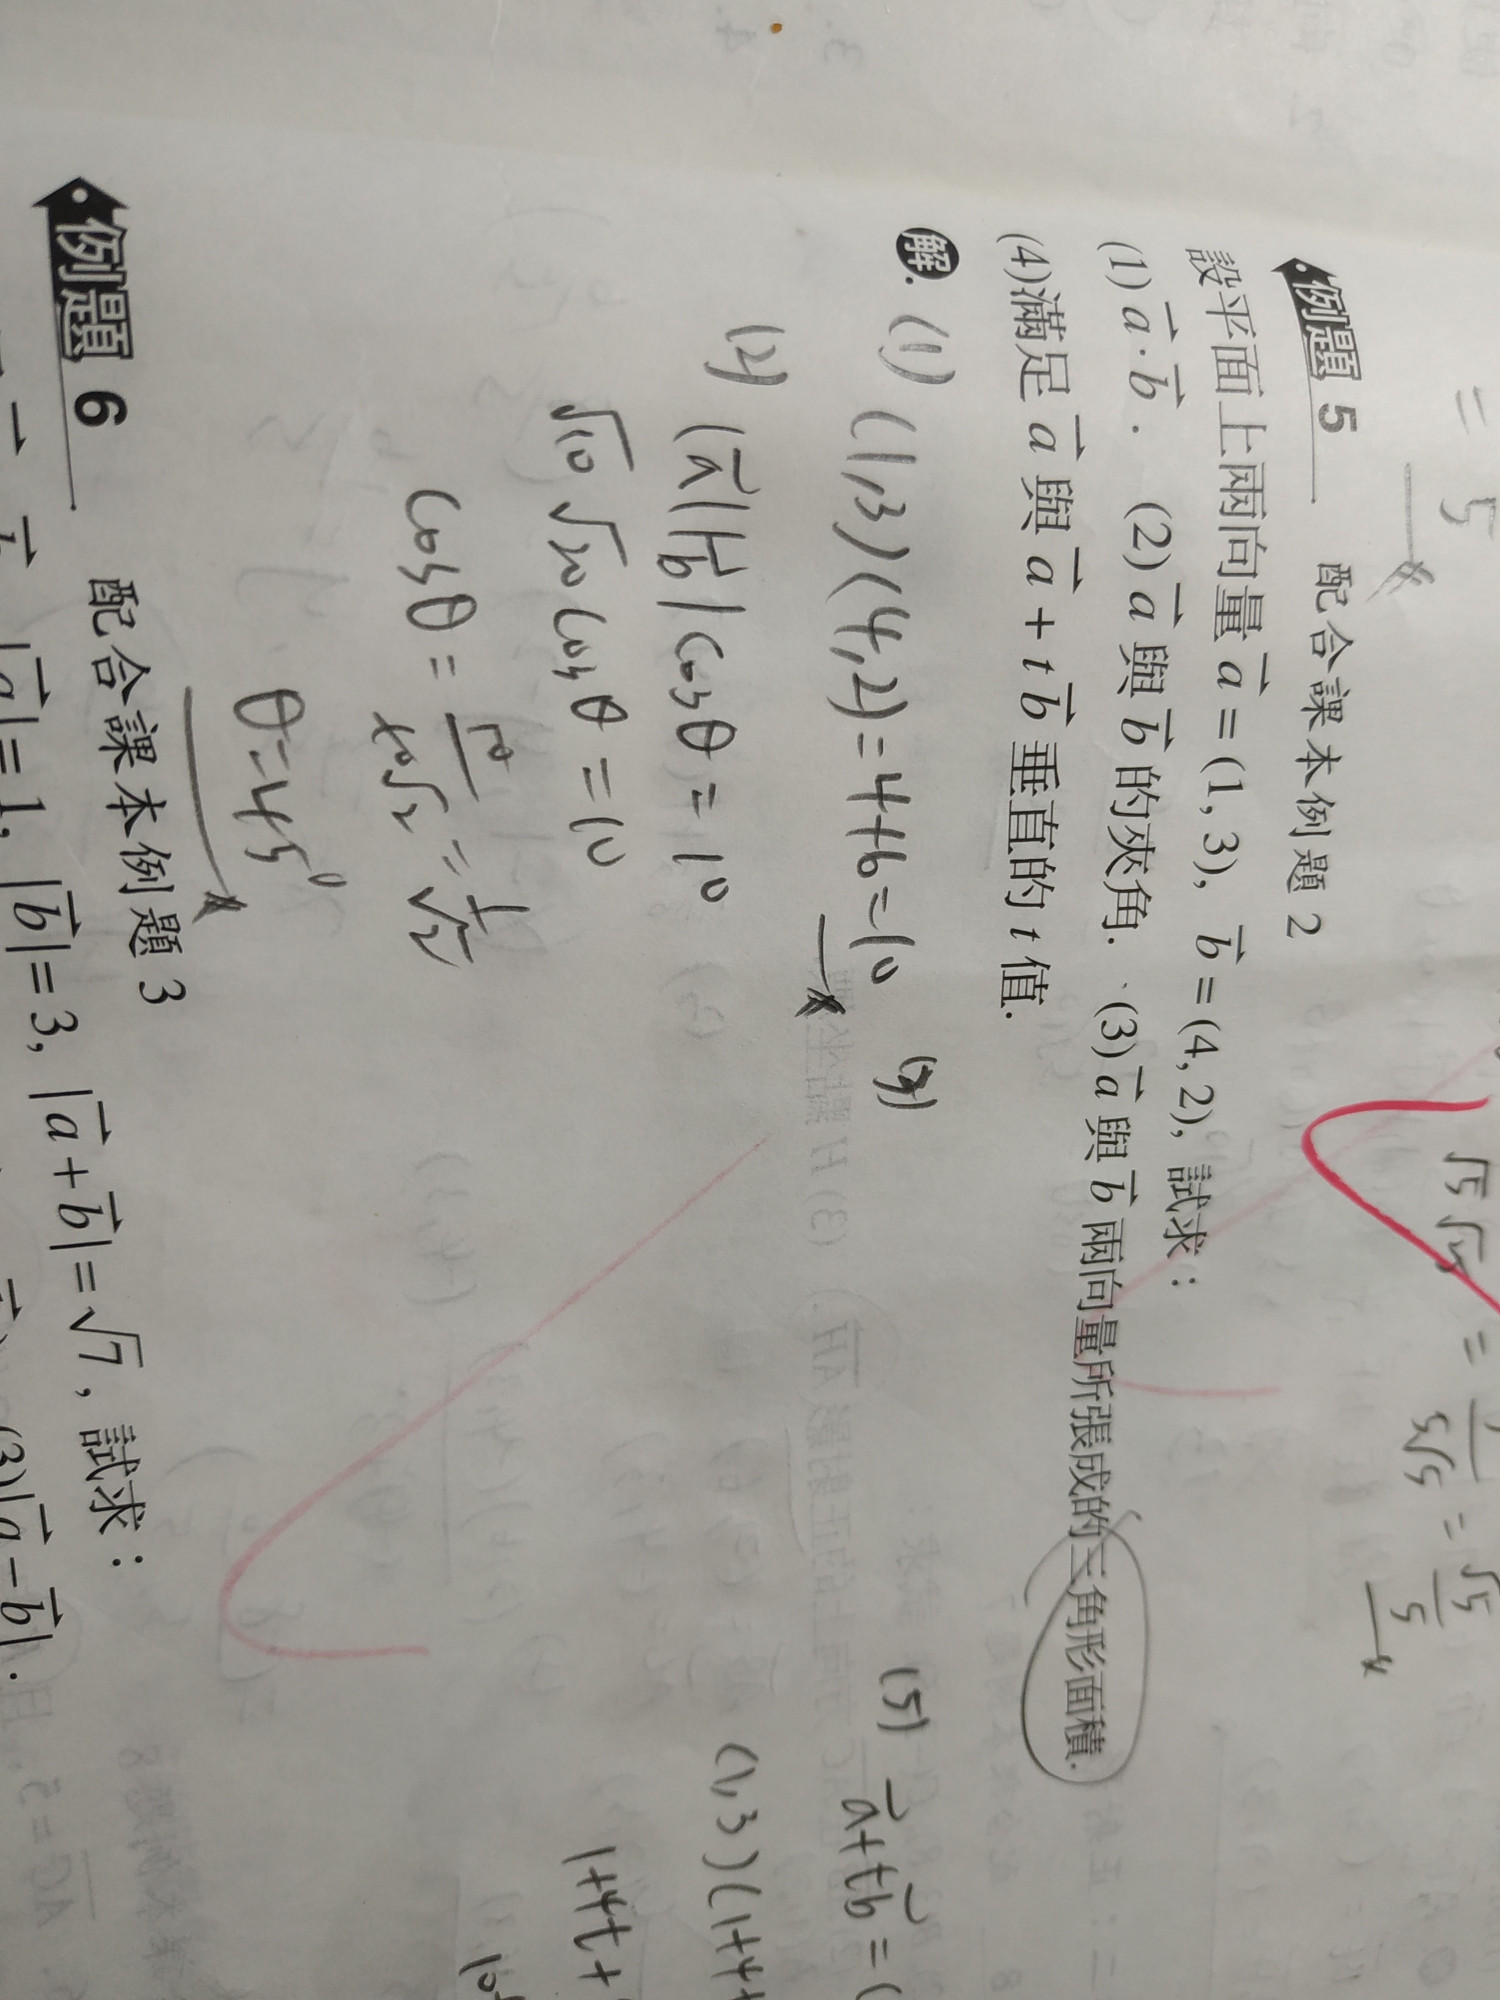 = 5
√5 √25 = 5√5 = √5/5
例題 5 配合課本例題 2
設平面上兩向量 a⃗ = (1, 3), b⃗ = (4, 2), 試求：
(1) a⃗ · b⃗. (2) a⃗ 與 b⃗ 的夾角. (3) a⃗ 與 b⃗ 兩向量所張成的三角形面積.
(4)滿足 a⃗ 與 a⃗ + t b⃗ 垂直的 t 值.
解.
(1) (1,3)(4,2)=4+6=10
(2) |a⃗||b⃗|cosθ=10
√10 √20 cosθ=10
cosθ=10/10√2=1/√2
θ=45°
(3)
(5) a⃗+tb⃗=(
(1,3)(1+4t
1+4t+
10t
例題 6 配合課本例題 3
|a⃗|=1, |b⃗|=3, |a⃗+b⃗|=√7, 試求：
(3)|a⃗−b⃗|.